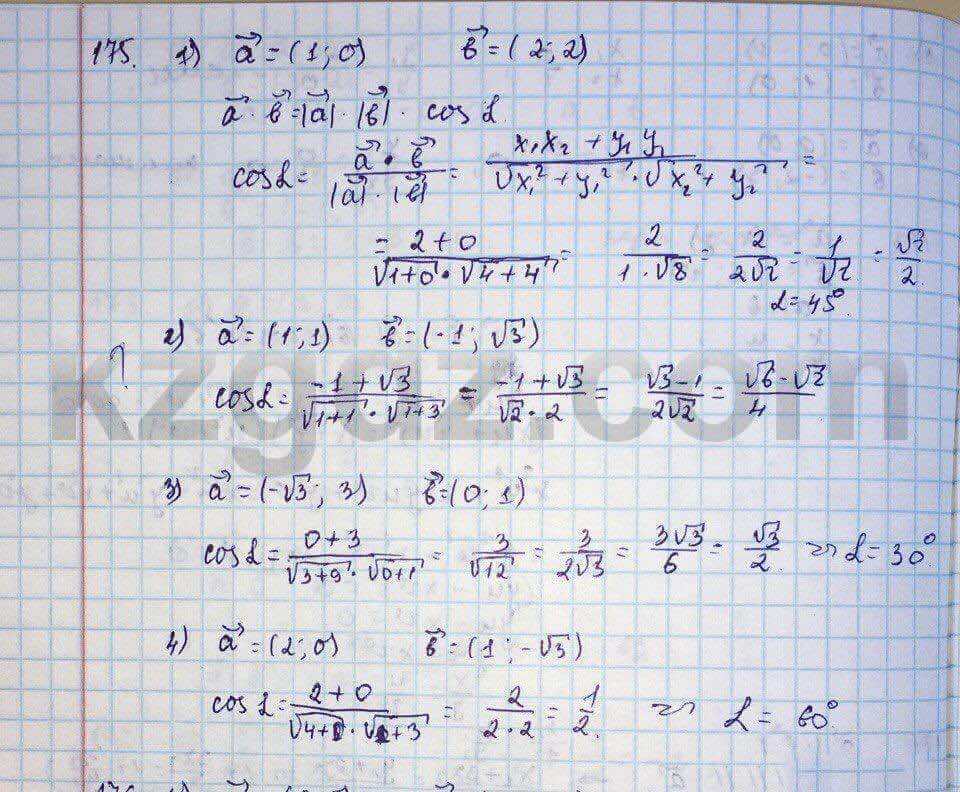 175. 1) a⃗ = (1; 0) b⃗ = (2; 2)
a⃗ · b⃗ = |a⃗| · |b⃗| · cos α
cos α = (a⃗ · b⃗)/(|a⃗| · |b⃗|) = (x₁x₂ + y₁y₂)/(√(x₁² + y₁²) · √(x₂² + y₂²)) =
= (2 + 0)/(√(1+0) · √(4+4)) = 2/(1 · √8) = 2/(2√2) = 1/√2 = √2/2.
α = 45°.
2) a⃗ = (1; 1) b⃗ = (-1; √3)
cos α = (-1 + √3)/(√(1+1) · √(1+3)) = (-1 + √3)/(√2 · 2) = (√3 - 1)/(2√2) = (√6 - √2)/4
kzgdz.com
3) a⃗ = (-√3; 3) b⃗ = (0; 1)
cos α = (0 + 3)/(√(3+9) · √(0+1)) = 3/√12 = 3/(2√3) = 3√3/6 = √3/2. => α = 30°.
4) a⃗ = (2; 0) b⃗ = (1; -√3)
cos α = (2 + 0)/(√(4+0) · √(1+3)) = 2/(2 · 2) = 1/2. => α = 60°.